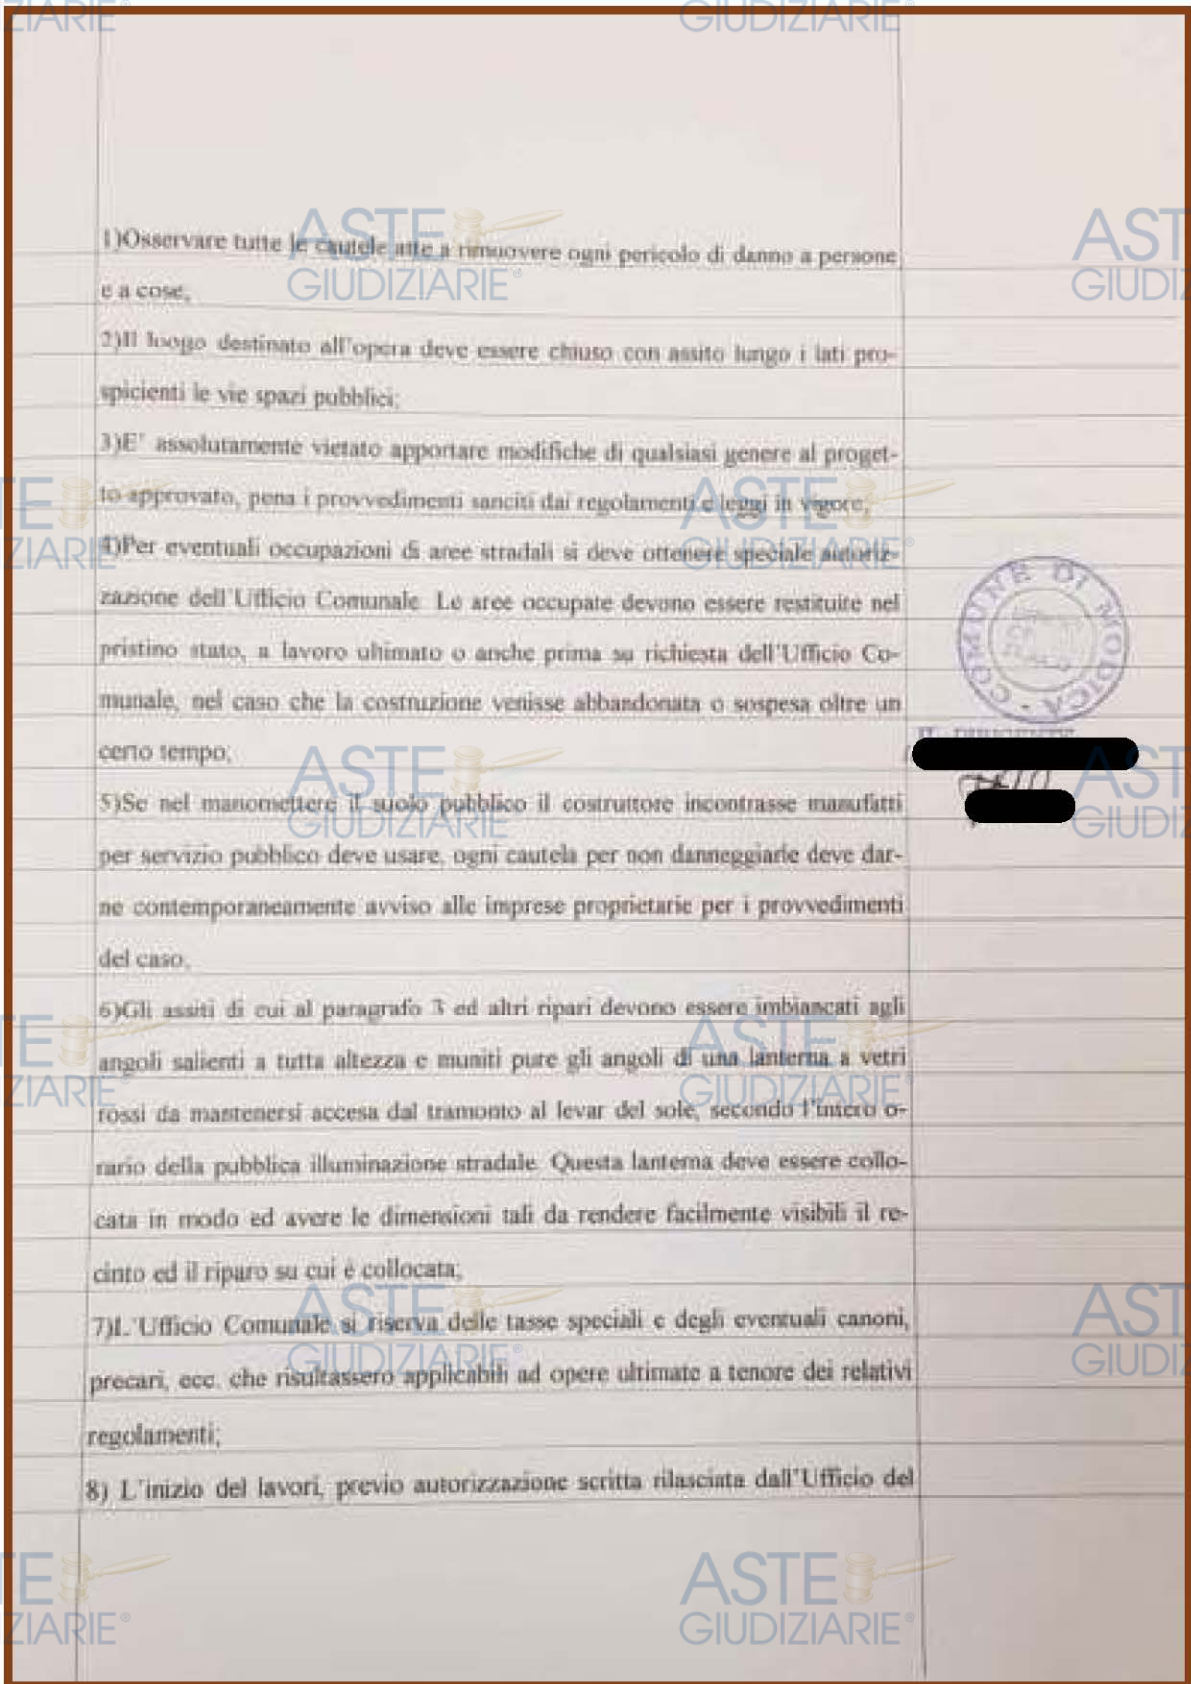 1)Osservare tutte le cautele atte a rimuovere ogni pericolo di danno a persone
e a cose,
2)Il luogo destinato all'opera deve essere chiuso con assito lungo i lati pro-
spicienti le vie spazi pubblici;
3)E' assolutamente vietato apportare modifiche di qualsiasi genere al proget-
to approvato, pena i provvedimenti sanciti dai regolamenti e leggi in vigore,
4)Per eventuali occupazioni di aree stradali si deve ottenere speciale autoriz-
zazione dell'Ufficio Comunale. Le aree occupate devono essere restituite nel
pristino stato, a lavoro ultimato o anche prima su richiesta dell'Ufficio Co-
munale, nel caso che la costruzione venisse abbandonata o sospesa oltre un
certo tempo;
5)Se nel manomettere il suolo pubblico il costruttore incontrasse manufatti
per servizio pubblico deve usare, ogni cautela per non danneggiarle deve dar-
ne contemporaneamente avviso alle imprese proprietarie per i provvedimenti
del caso,
6)Gli assiti di cui al paragrafo 3 ed altri ripari devono essere imbiancati agli
angoli salienti a tutta altezza e muniti pure gli angoli di una lanterna a vetri
rossi da mantenersi accesa dal tramonto al levar del sole, secondo l'intero o-
rario della pubblica illuminazione stradale. Questa lanterna deve essere collo-
cata in modo ed avere le dimensioni tali da rendere facilmente visibili il re-
cinto ed il riparo su cui è collocata;
7)L'Ufficio Comunale si riserva delle tasse speciali e degli eventuali canoni,
precari, ecc. che risultassero applicabili ad opere ultimate a tenore dei relativi
regolamenti;
8) L'inizio del lavori, previo autorizzazione scritta rilasciata dall'Ufficio del
COMUNE DI MODICA
IL DIRIGENTE
ASTE
GIUDIZIARIE®